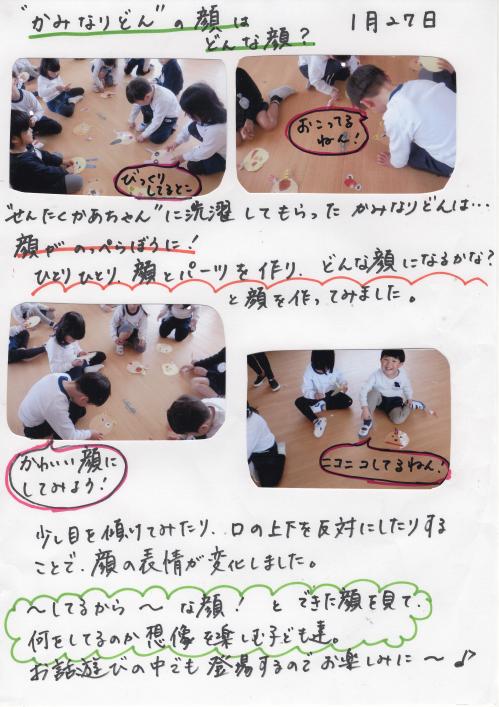 "かみなりどん"の顔は
どんな顔？
1月27日
びっくり
してるとこ
おこってる
ねん！
"せんたくかあちゃん"に洗濯してもらったかみなりどんは…
顔がのっぺらぼうに！
ひとりひとり、顔とパーツを作り、どんな顔になるかな？
と顔を作ってみました。
かわいい顔に
してみよう！
ニコニコしてるねん！
少し目を傾けてみたり、口の上下を反対にしたりする
ことで、顔の表情が変化しました。
〜してるから〜な顔！とできた顔を見て、
何をしてるのか想像を楽しむ子ども達。
お話遊びの中でも登場するのでお楽しみに〜♪